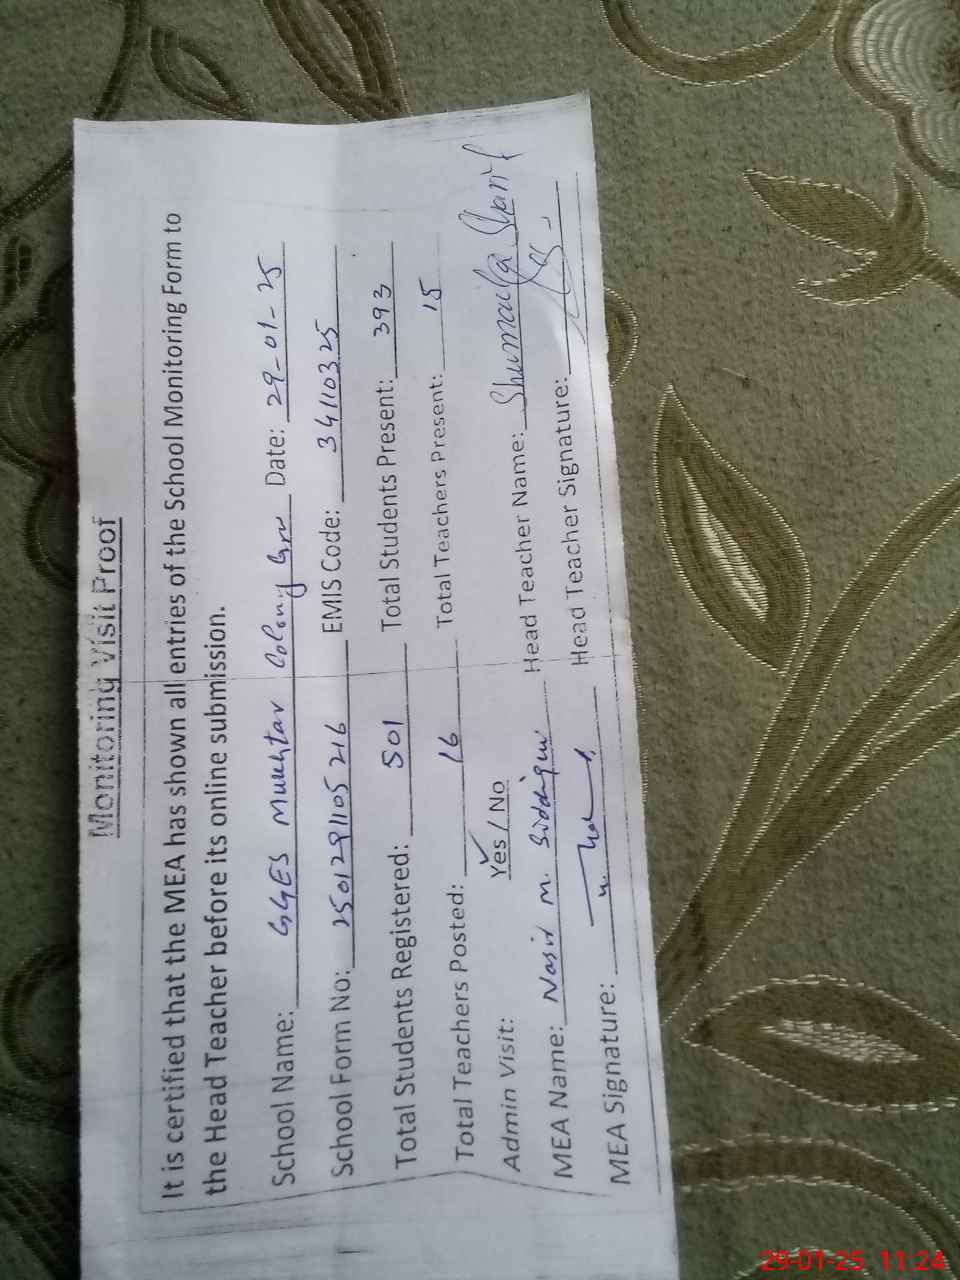 Monitoring Visit Proof
It is certified that the MEA has shown all entries of the School Monitoring Form to
the Head Teacher before its online submission.
School Name: GGES Mukhtar Colony Grw Date: 29-01-25
School Form No: 2501291105216 EMIS Code: 34110325
Total Students Registered: 501 Total Students Present: 393
Total Teachers Posted: 16 Total Teachers Present: 15
Admin Visit: Yes / No
MEA Name: Nasir M. Siddiqui Head Teacher Name: Shumaila Sharif
MEA Signature: Head Teacher Signature:
29-01-25 11:24